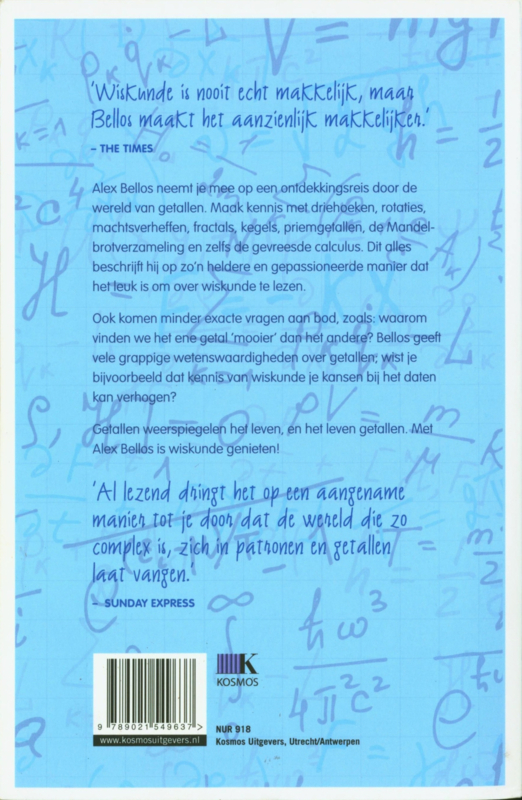 ‘Wiskunde is nooit echt makkelijk, maar
Bellos maakt het aanzienlijk makkelijker.’
– THE TIMES
Alex Bellos neemt je mee op een ontdekkingsreis door de
wereld van getallen. Maak kennis met driehoeken, rotaties,
machtsverheffen, fractals, kegels, priemgetallen, de Mandel-
brotverzameling en zelfs de gevreesde calculus. Dit alles
beschrijft hij op zo’n heldere en gepassioneerde manier dat
het leuk is om over wiskunde te lezen.
Ook komen minder exacte vragen aan bod, zoals: waarom
vinden we het ene getal ‘mooier’ dan het andere? Bellos geeft
vele grappige wetenswaardigheden over getallen; wist je
bijvoorbeeld dat kennis van wiskunde je kansen bij het daten
kan verhogen?
Getallen weerspiegelen het leven, en het leven getallen. Met
Alex Bellos is wiskunde genieten!
‘Al lezend dringt het op een aangename
manier tot je door dat de wereld die zo
complex is, zich in patronen en getallen
laat vangen.’
– SUNDAY EXPRESS
K
KOSMOS
9 789021 549637 >
www.kosmosuitgevers.nl
NUR 918
Kosmos Uitgevers, Utrecht/Antwerpen